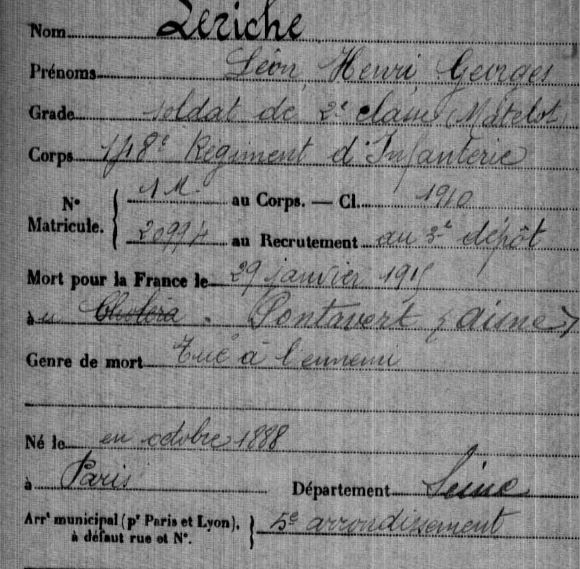 Nom Leriche
Prénoms Léon Henri Georges
Grade soldat de 2e classe (Matelot)
Corps 148e Régiment d'Infanterie
N° Matricule. { au Corps. — Cl. 1910
20994 au Recrutement au 3e dépôt
Mort pour la France le 29 janvier 1915
à Pontavert (aisne)
Genre de mort Tué à l'ennemi
Né le en octobre 1888
à Paris Département Seine
Arrt municipal (pr Paris et Lyon), à défaut rue et N°. } 5e arrondissement